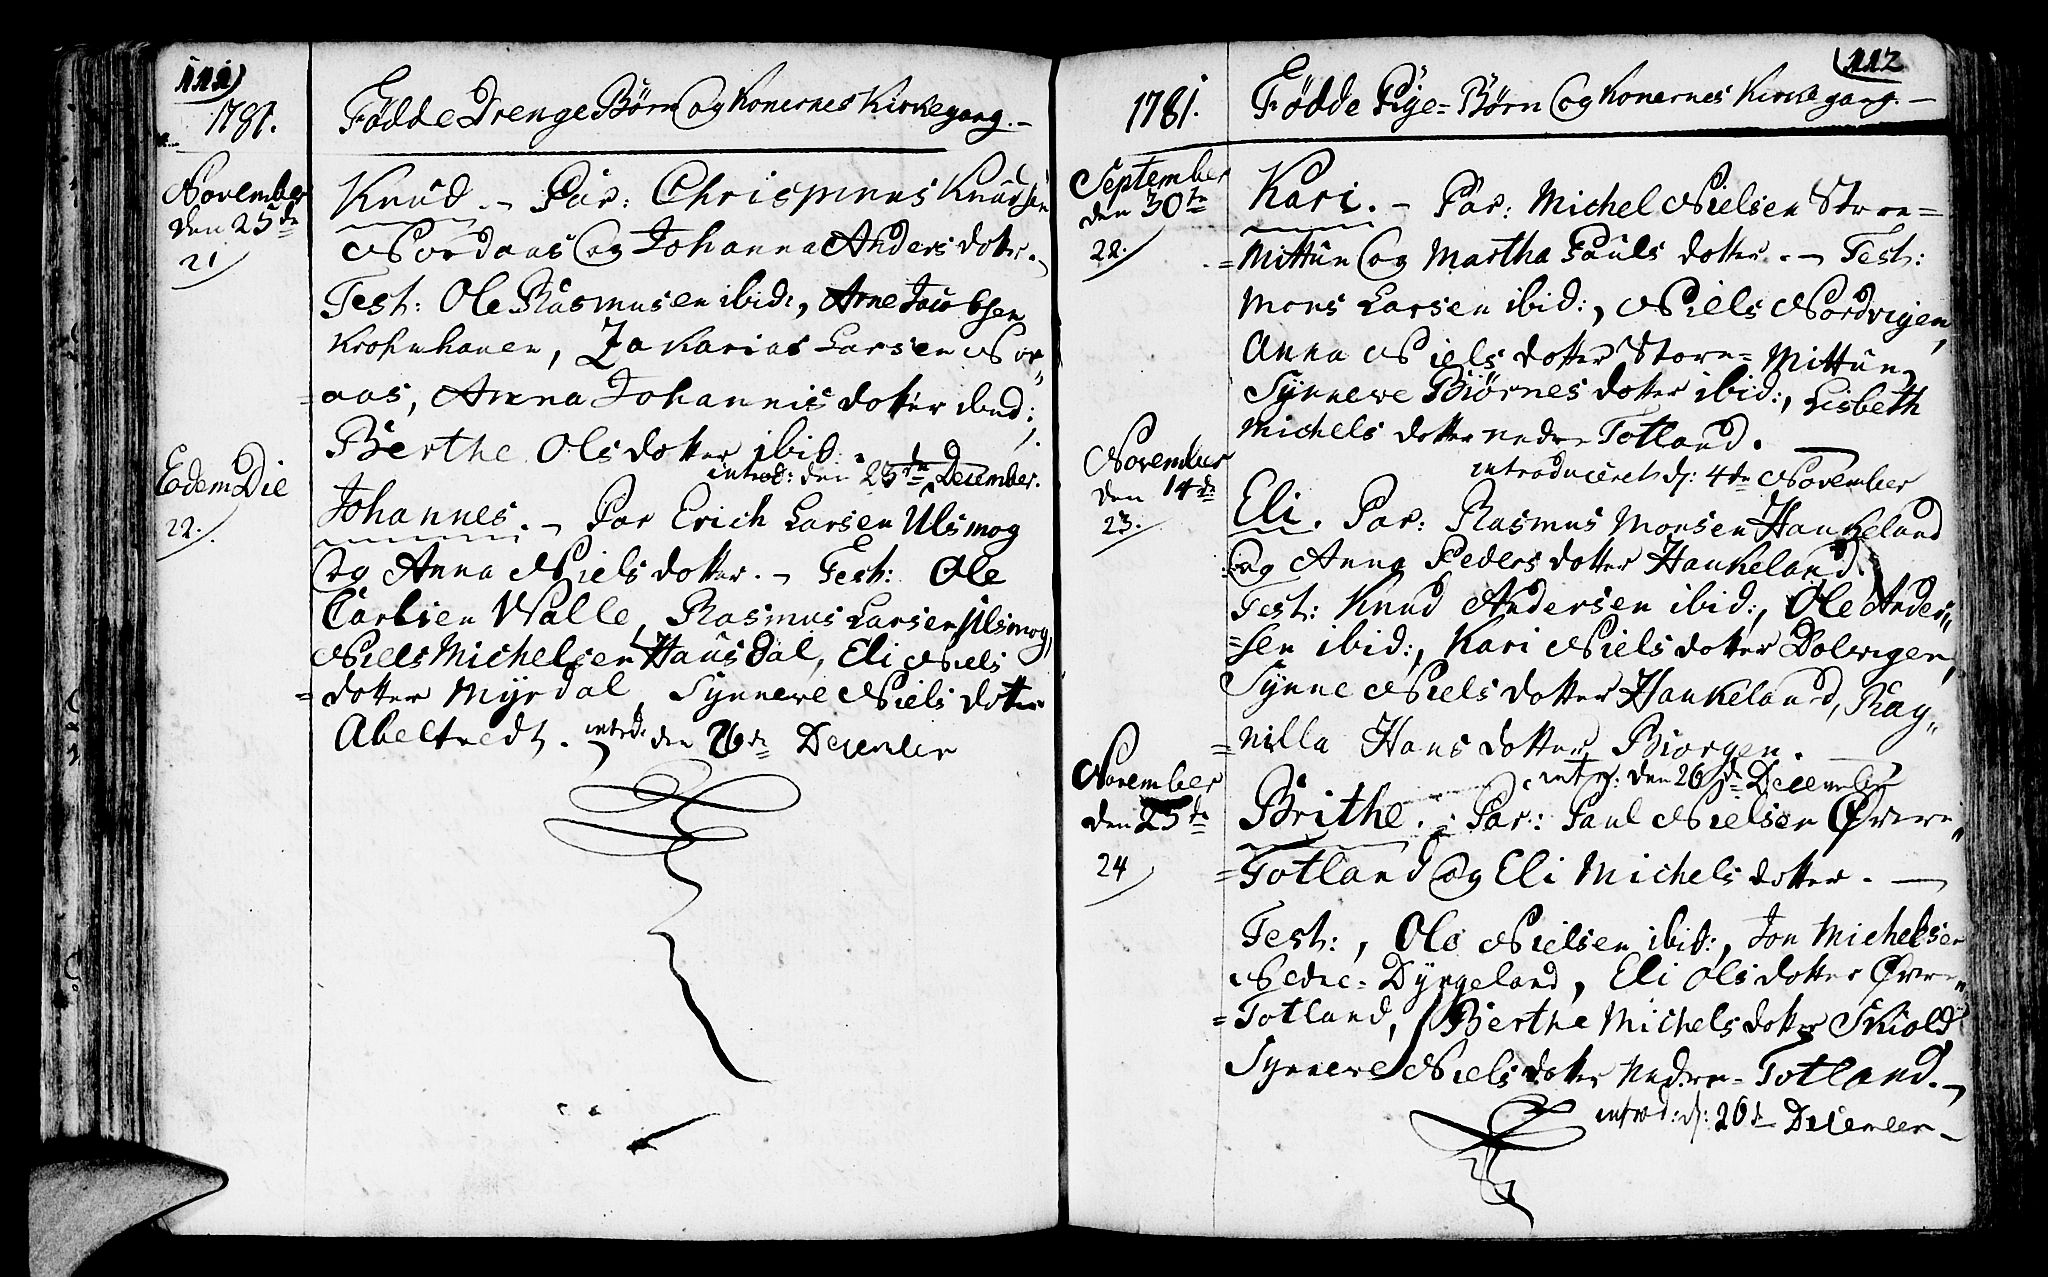 111)
1781.
Födde Drenge Børn Og Konernes Kirkegang. –
November
den 25de
21
Knud. – Par: Chrispinus Knudsen
Nordaas Og Johanna Anders dotter. –
Test: Ole Rasmusen ibid:, Arne Jacobsen
Krohnhauen, Zakarias Larsen Nor„
=aas, Anna Johannis dotter ibid:,
Berthe Ols dotter ibid:.
introd: den 23de December.
Eodem Die
22.
Johannes. – Par Erich Larsen Ulsmog
Og Anna Niels dotter. – Test: Ole
Carlsen Walle, Rasmus Larsen Ulsmog,
Niels Michelsen Hausdal, Eli Niels
=dotter Myrdal, Synnewe Niels dotter
Abeltvedt. introd: den 26de December
(112
1781.
Födde Pige=Børn Og Konernes Kirkegang. –
September
den 30te
22.
Kari. – Par: Michel Nielsen Store=
=Mittun Og Martha Pauls dotter. – Test:
Mons Larsen ibid:, Niels Nordvigen,
Anna Niels dotter Store=Mittun,
Synnewe Biørnes dotter ibid:, Lisbeth
Michels dotter nedre Totland. —
introduceret d: 4de November
November
den 14de
23.
Eli. Par: Rasmus Monsen Haukeland
Og Anna Peders dotter Haukeland.
Test: Knud Andersen ibid:, Ole Ander„
=sen ibid:, Kari Niels dotter Dolvigen,
Synne Niels dotter Haukeland, Rag„
=nilla Hans dotter Biorgen.
introd: den 26de December
November
den 25de
24
Brithe. – Par: Paul Nielsen Øvre„
=Totland Og Eli Michels dotter. —
Test:, Ole Nielsen ibid:, Jon Michelsen
Nedre=Dyngeland, Eli Ols dotter Øvre„
=Totland, Berthe Michels dotter Skiold
Synnewe Niels dotter Nedre=Totland. –
introd: d: 26de December –